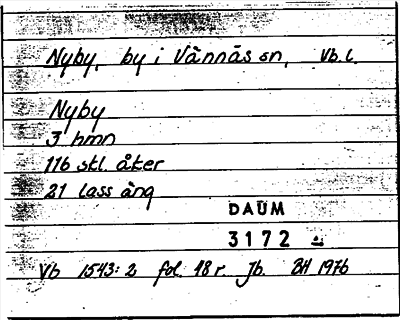 Nyby, by i Vännäs sn, Vb. l.
Nyby
3 hmn
116 skl. åker
21 lass äng
DAUM
3172
Vb 1543:2 fol. 18 r. Jb. BH 1976